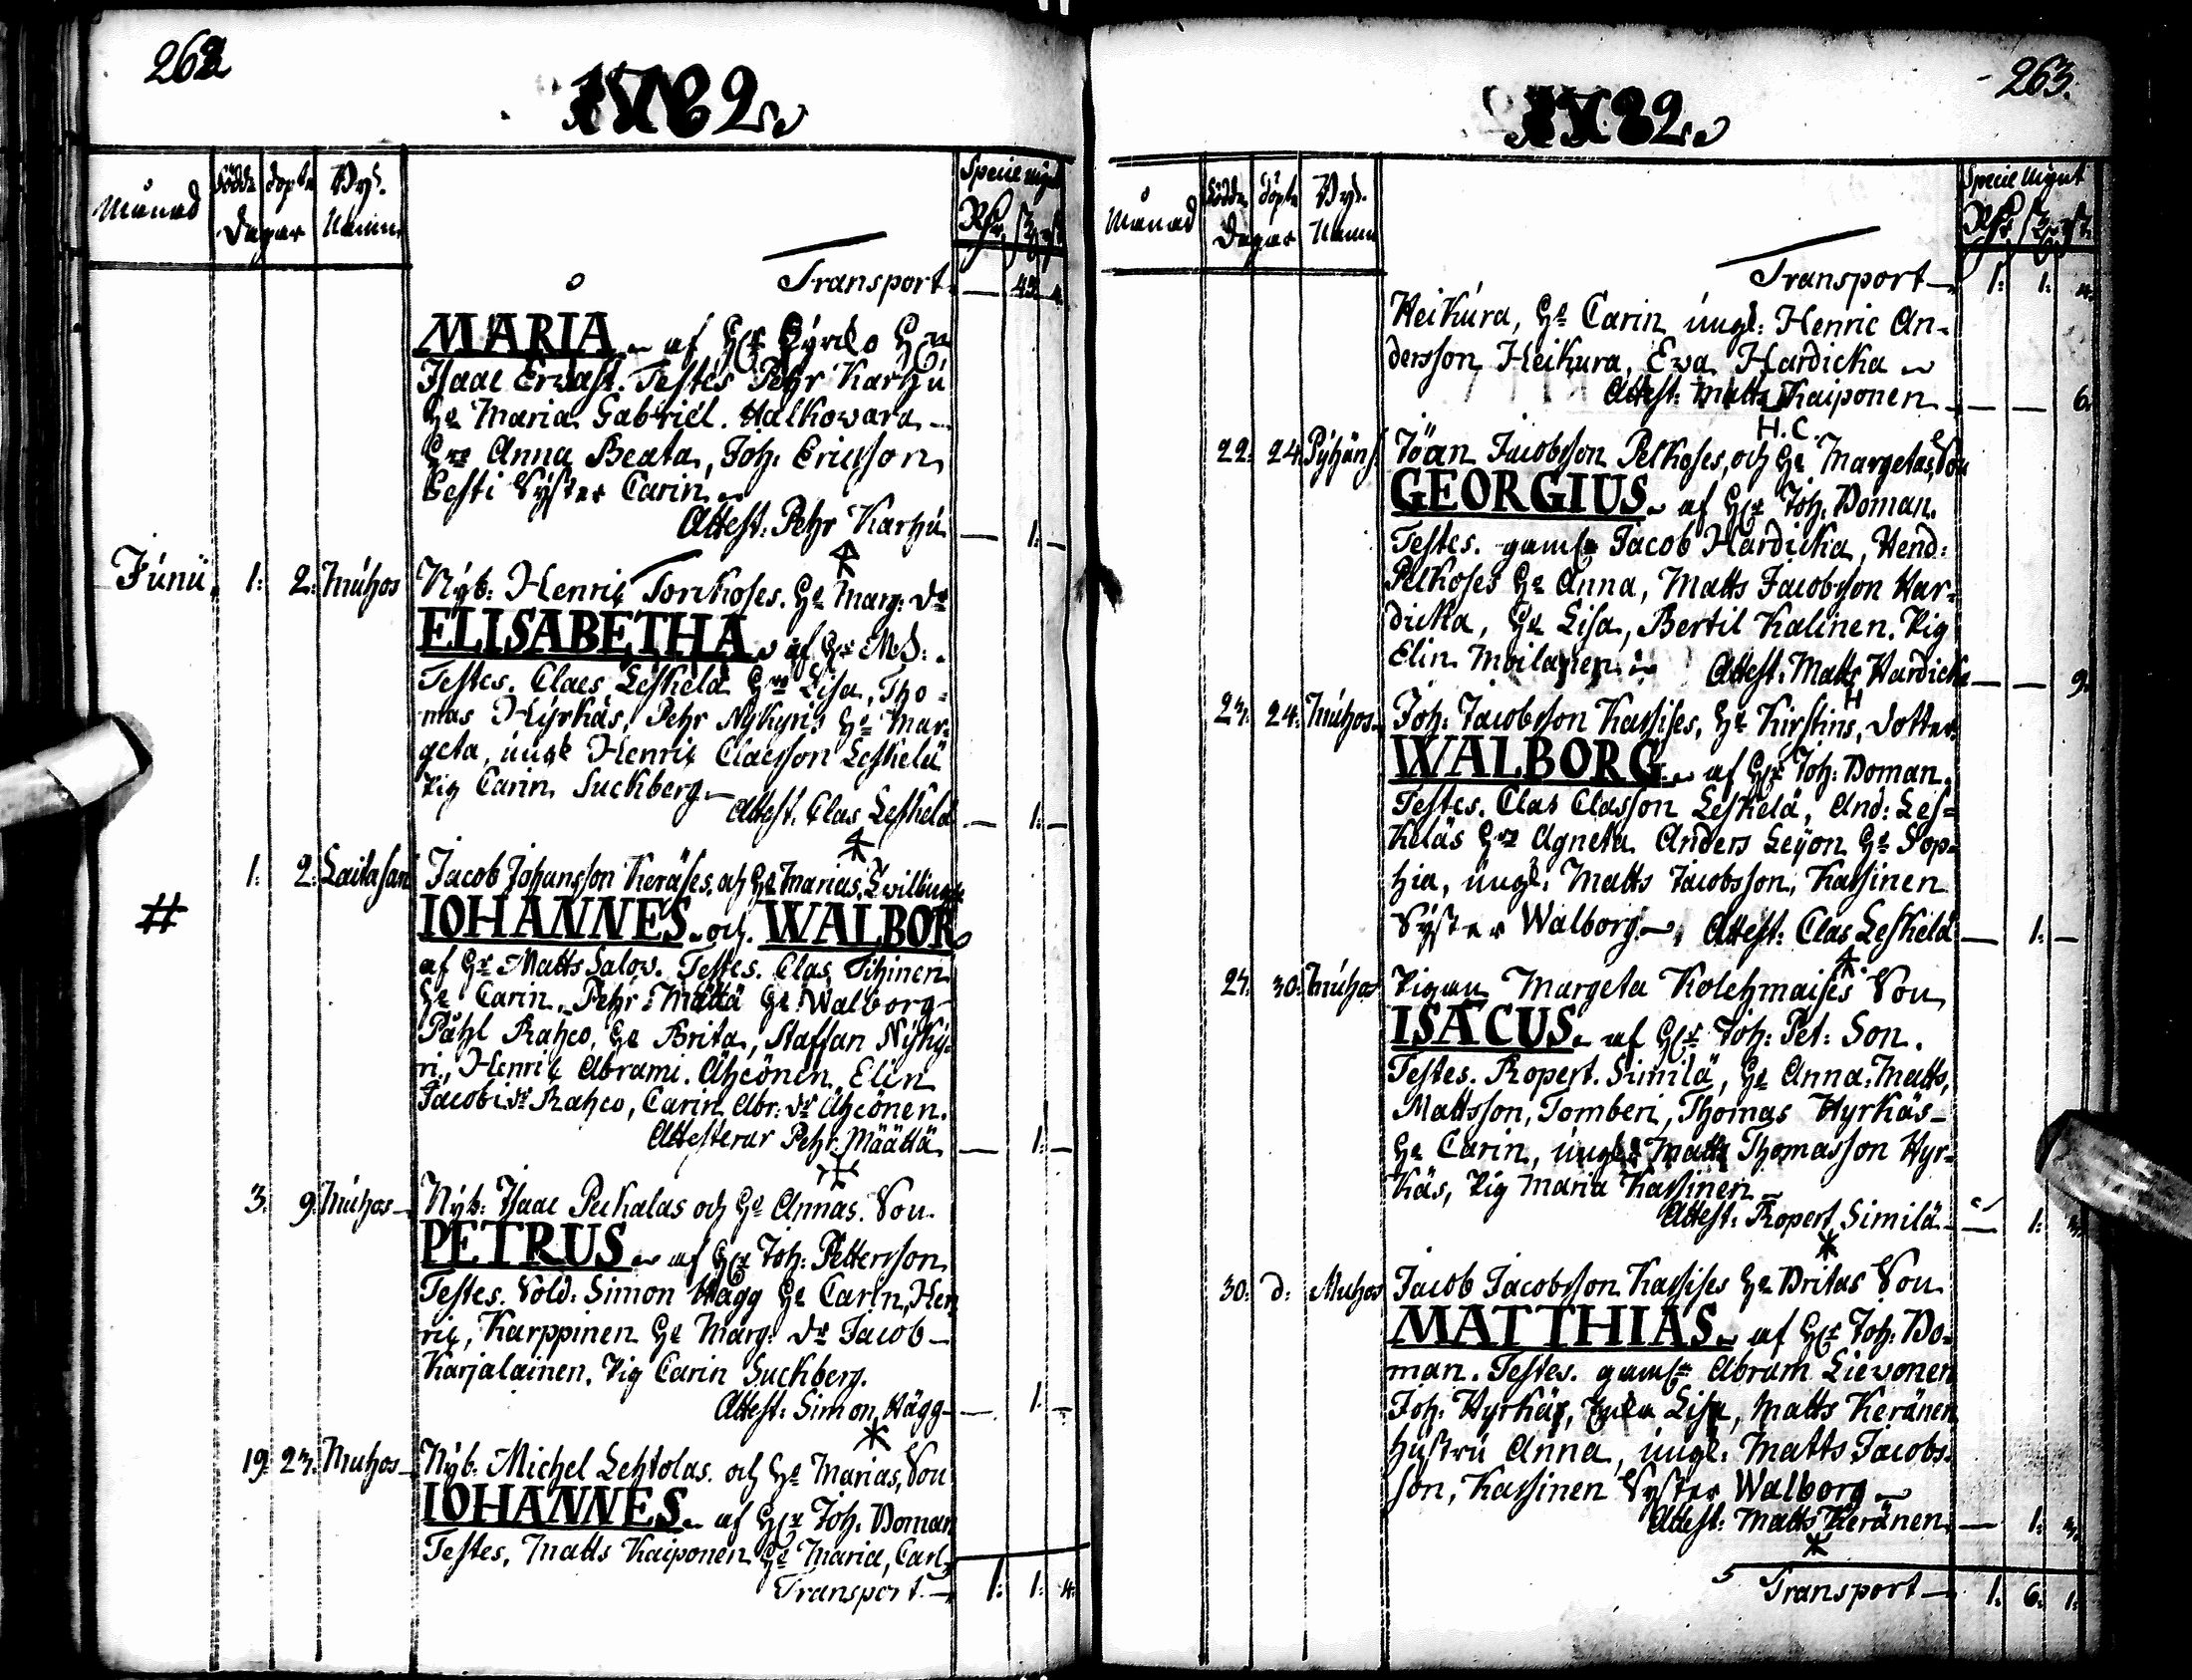 262
1782
Månad
Födde
döpte
Dagar
Bys.
Namn
Specie mÿnt
Transport — 43. 4.
MARIA af
Isaac Ervast. Testes Pehr Karhu
He Maria Gabriel. Halkowara
Anna Beata, Joh. Ericsson
Pesti Syster Carin
Attest: Pehr Karhu — 1. —
Junii 1. 2. Muhos Nyb: Henric Torrkoses. He Marg: dr
ELISABETHA af
Testes. Claes Leskelä Lisa, Tho-
mas Hyrkäs, Pehr Nykyri He Mar-
geta, ungk Henric Claesson Leskelä
Pig Carin Suckberg
Attest. Clas Leskelä — 1. —
1. 2. Laitasari Jacob Johansson Keräses, och He Marias, Twillingar
#
IOHANNES och WALBOR
af Hr Matts Salov. Testes. Clas Tihinen
He Carin, Pehr Määttä He Walborg
Påhl Rahco, He Brita, Staffan Nyky-
ri, Henric Abrami. Ähcönen, Elin
Jacobi dr Rahco, Carin Abr: dr Ähcönen.
Attesterar Pehr Määttä — 1. —
3. 9. Muhos Nyb: Isaac Peckalas och He Annas. Son
PETRUS af Joh: Pettersson
Testes. Sold: Simon Hägg He Carin, Hen
ric, Karppinen He Marg: dr Jacob
Karjalainen. Pig Carin Suckberg.
Attest: Simon Hägg — 1. —
19. 23. Muhos Nyb: Michel Lehtolas. och He Marias, Son
IOHANNES af Joh. Boman
Testes, Matts Kaiponen He Maria, Carl
Transport 1. 1. 4.
263.
1782
Månad
Födde
döpte
Dagar
Bys.
Namn
Specie Mÿnt
Transport 1. 1. 4.
Heikura, He Carin ungl: Henric An-
dersson Heikura, Ewa Hardicka
Attest: Matts Kaiponen — — 6.
H. C.
22. 24. Pyhäns. Jöan Jacobsson Pelkoses, och He Margetas, Son
GEORGIUS af Joh: Boman.
Testes. gaml Jacob Hardicka, Hend:
Pelkoses He Anna, Matts Jacobsson Har-
dicka, He Lisa, Bertil Kalinen. Pig
Elin Moilanen Attest. Matts Hardicka — — 9.
H
23. 24. Muhos Joh: Jacobsson Kassises, He Kirstins, dotter
WALBORG af Joh: Boman.
Testes. Clas Classon Leskelä, And: Les-
keläs Agneta Anders Leyon He Sop-
hia, ungl: Matts Jacobsson, Kassinen
Syster Walborg. Attest: Clas Leskelä — 1. —
27. 30. Muhos Pigan Margeta Kolehmaises Son
ISACUS af Joh: Pet: Son.
Testes. Ropert. Similä, He Anna, Matts,
Mattsson, Tomberi, Thomas Hyrkäs
He Carin, ungl Matts Thomasson Hyr-
käs, Pig Maria Kassinen
Attest: Ropert Similä — 1. 3.
30. d: Muhos Jacob Jacobsson Kassises He Britas Son
MATTHIAS af Joh: Bo-
man. Testes. gaml Abram Lievonen
Joh: Hyrkäs, Lisa, Matts Keränen
hustru Anna, ungl: Matts Jacobs-
son, Kassinen Syster Walborg
Attest: Matts Keränen — 1. 3.
Transport 1. 6. 1.